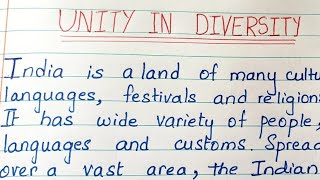 UNITY IN DIVERSITY
India is a land of many cultu
languages, festivals and religion
It has wide variety of people,
languages and customs. Spread
over a vast area, the Indian